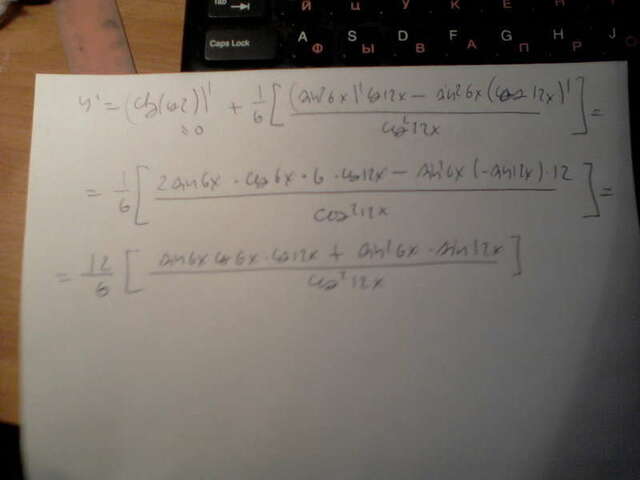 Tab
Й Ц У К Е Н
Caps Lock A S D F G H J
Ф Ы В А П Р О
y' = (ch(cos2))' + 1/6 [ ((sin²6x)' cos12x − sin²6x (cos 12x)') / cos²12x ] =
= 0
= 1/6 [ (2 sin6x · cos6x · 6 · cos12x − sin²6x (−sin12x) · 12) / cos²12x ] =
= 12/6 [ (sin6x cos6x · cos12x + sin²6x · sin12x) / cos²12x ]